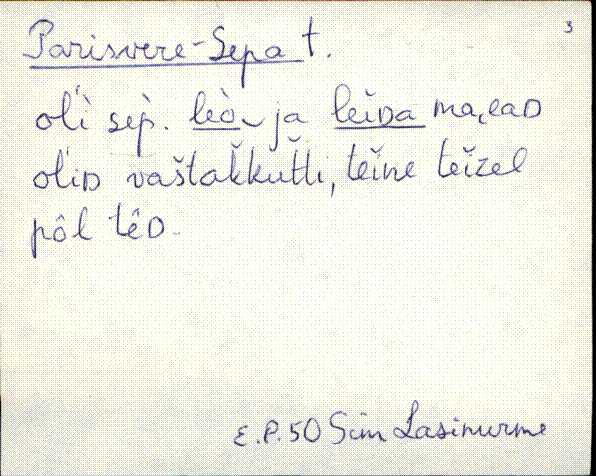 Parisvere-Sepa t.
3
oľì sèp. leò ja leiDa ma,eaD
oľiD vaštakkutti, teine teizel
pôl têD.
E.P.50 Sim Lasinurme